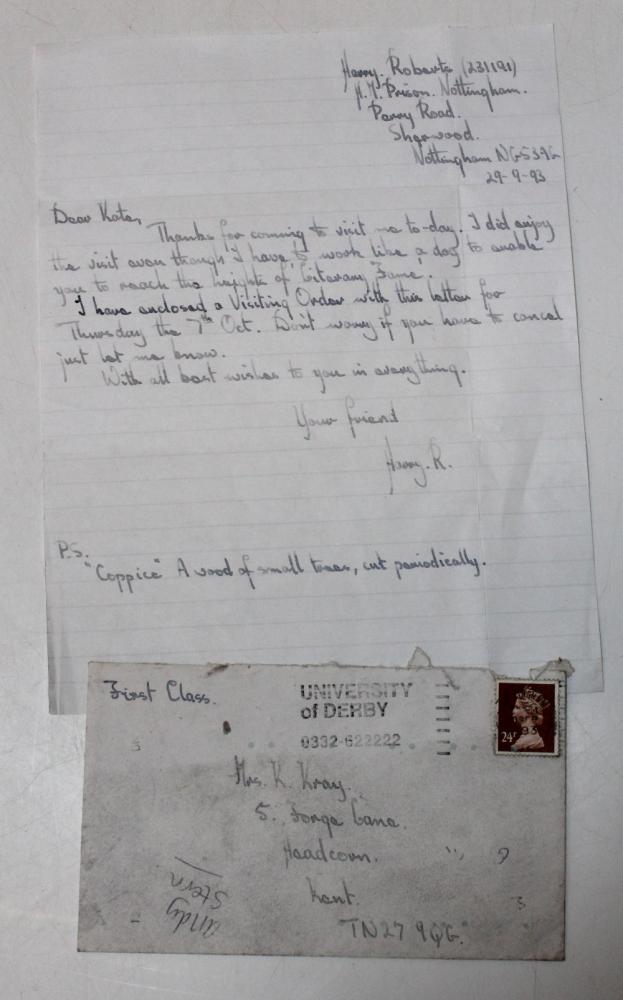 Harry. Roberts (231191)
H.M. Prison. Nottingham.
Perry Road.
Sherwood.
Nottingham NG53AG
29-9-93
Dear Kate,
Thanks for coming to visit me to-day. I did enjoy
the visit even though I have to work like a dog to enable
you to reach the heights of Literary Fame.
I have enclosed a Visiting Order with this letter for
Thursday the 7th Oct. Don't worry if you have to cancel
just let me know.
With all best wishes to you in everything.
Your friend
Harry. R.
P.S.
"Coppice" A wood of small trees, cut periodically.
First Class.
UNIVERSITY
of DERBY
0332-622222
24P
93
Mrs. K. Kray.
5. Forge Lane.
Headcorn.
Kent.
TN27 9QG.
andy
Stern